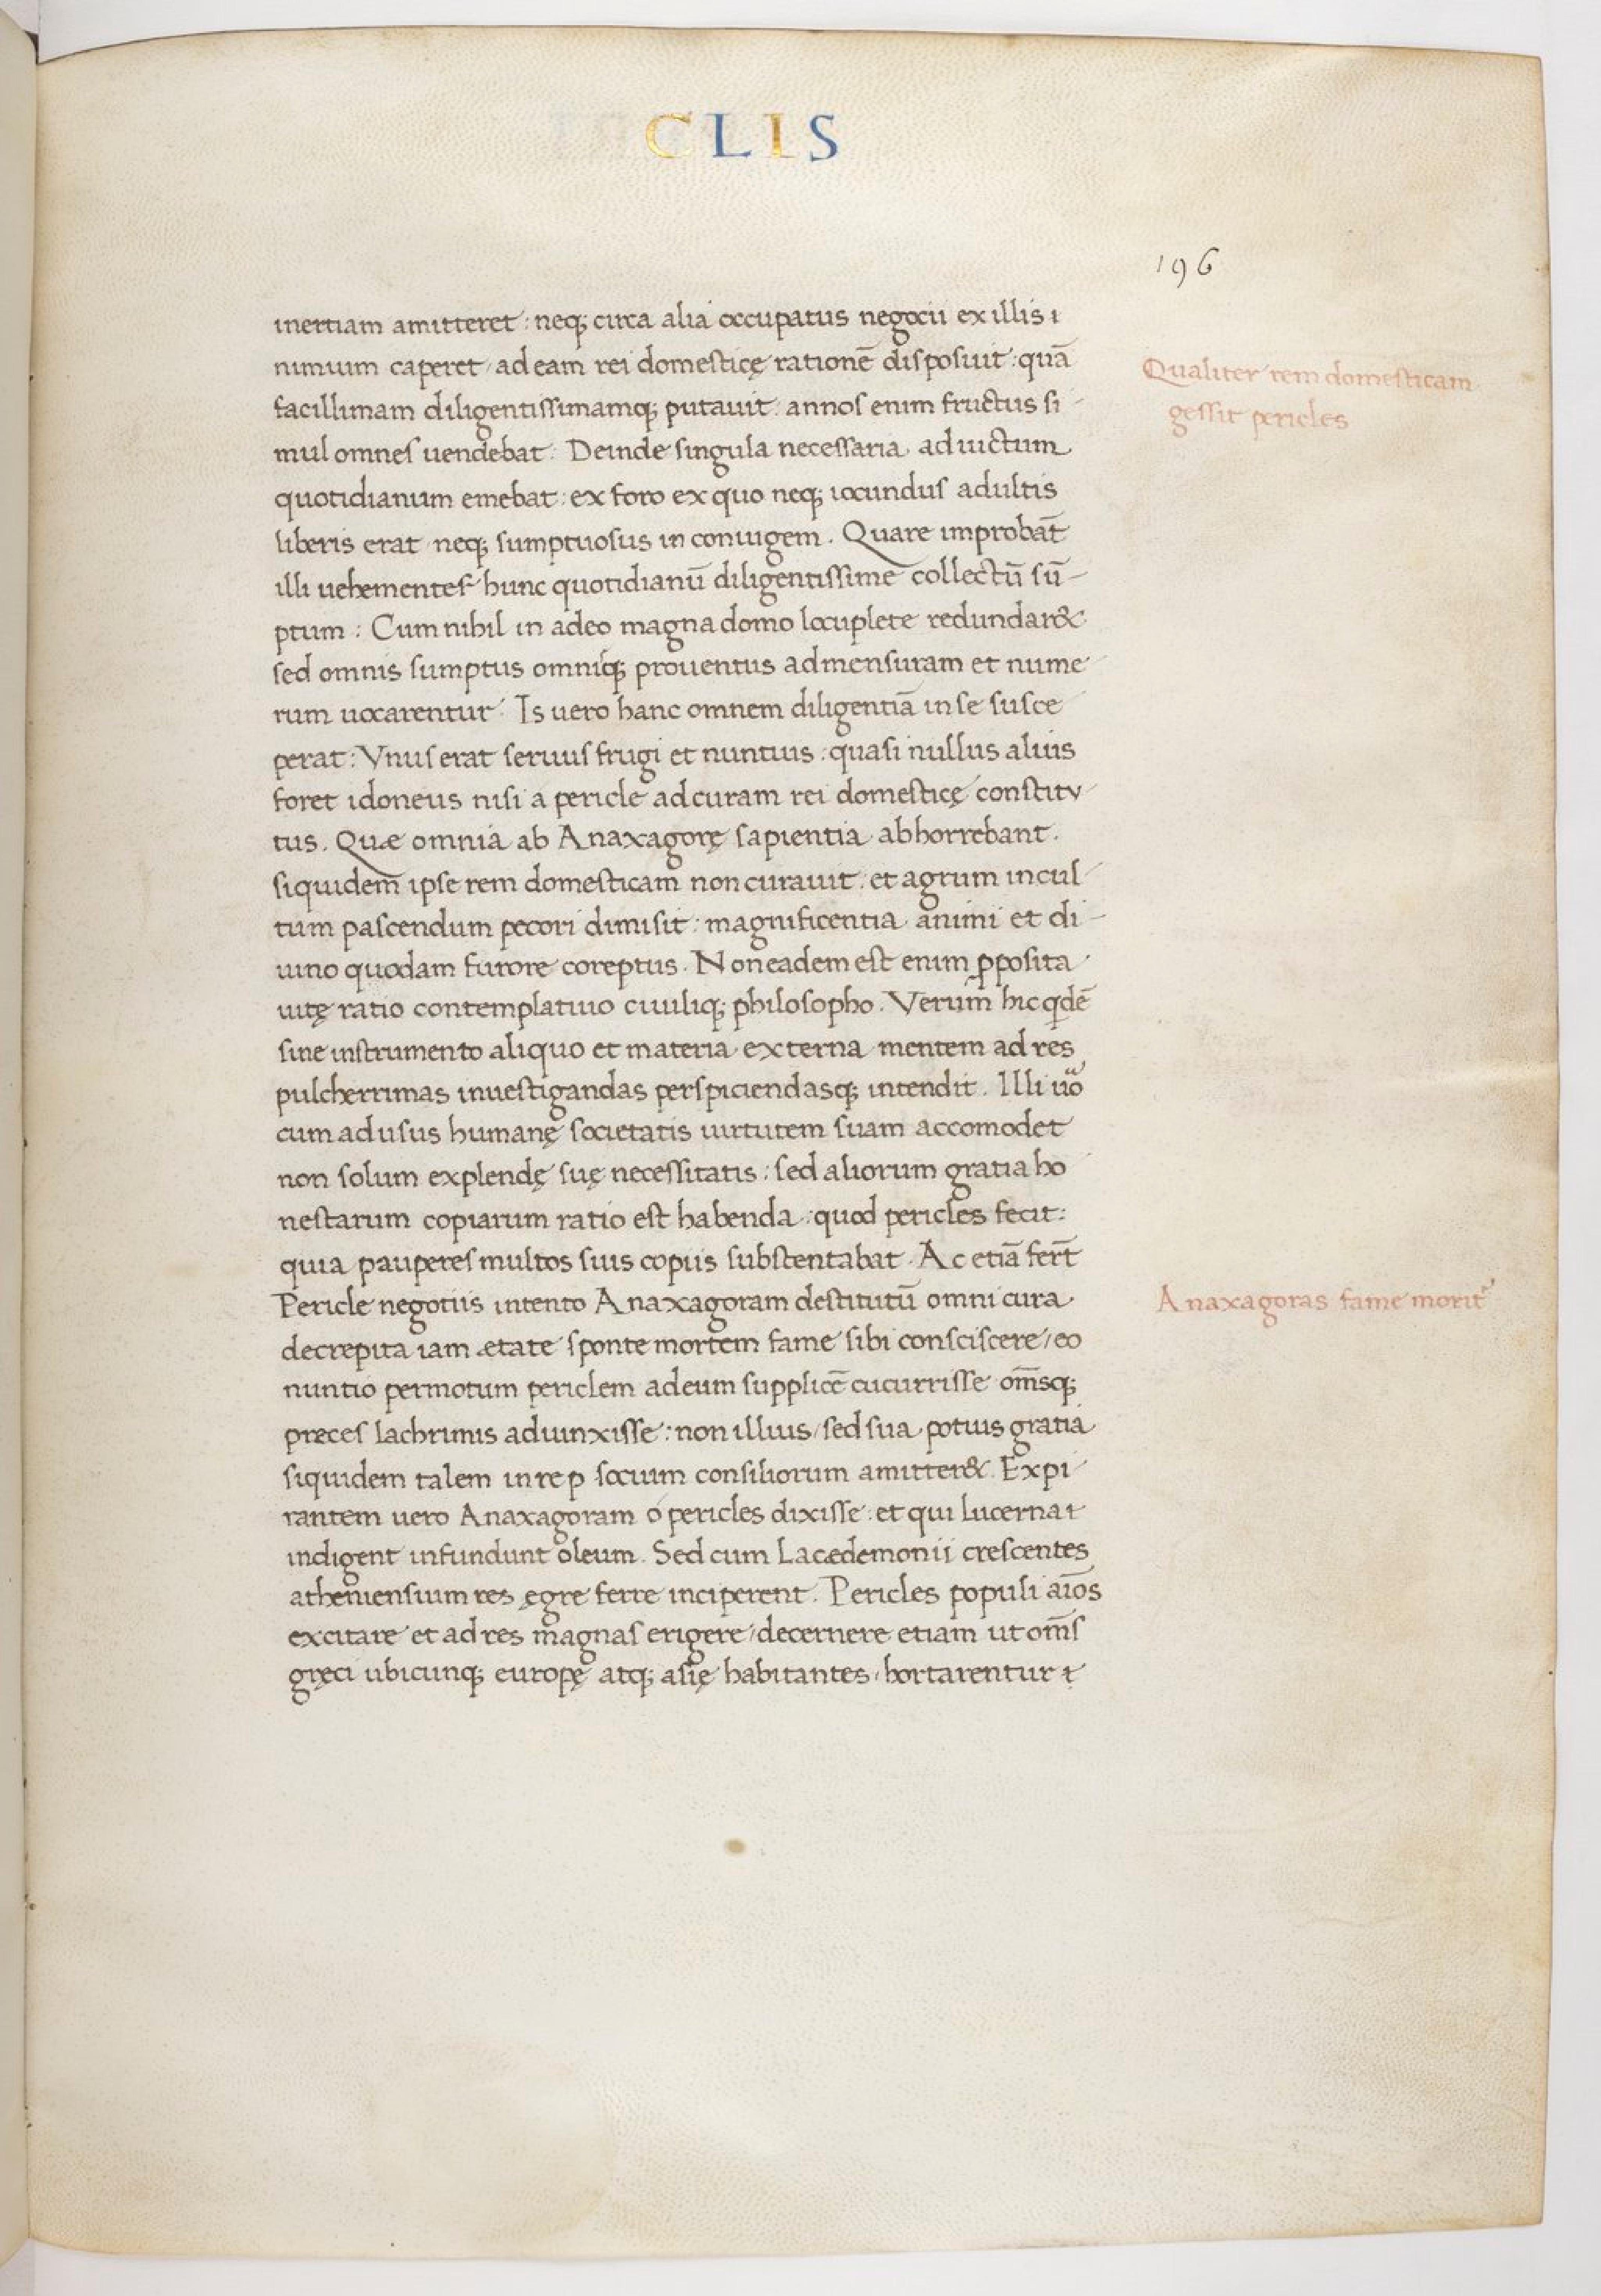 CLIS
196
inertiam amitteret : neq; circa alia occupatus negocii ex illis i
nimium caperet / ad eam rei domesticę rationē disposuit : quā
Qualiter rem domesticam
facillimam diligentissimamq; putauit : annos enim fructus si
gessit pericles
mul omnes uendebat : Deinde singula necessaria ad uictum
quotidianum emebat : ex foro ex quo neq; iocundus adultis
liberis erat neq; sumptuosus in coniugem . Quare improbāt
illi uehementer hunc quotidianū diligentissime collectū sū-
ptum : Cum nihil in adeo magna domo locuplete redundar&
sed omnis sumptus omnisq; prouentus ad mensuram et nume
rum uocarentur . Is uero hanc omnem diligentiā in se susce
perat : Vnus erat seruus frugi et nuntius : quasi nullus alius
foret idoneus nisi a pericle ad curam rei domesticę constitu
tus . Quæ omnia ab Anaxagorę sapientia abhorrebant .
siquidem ipse rem domesticam non curauit : et agrum incul
tum pascendum pecori dimisit : magnificentia animi et di-
uino quodam furore coreptus . Non eadem est enim ꝓposita
uitę ratio contemplatiuo ciuiliq; philosopho . Verum hic qdē
sine instrumento aliquo et materia externa mentem ad res
pulcherrimas inuestigandas perspiciendasq; intendit . Illi uo
cum ad usus humanę societatis uirtutem suam accomodet
non solum explendę suę necessitatis : sed aliorum gratia ho
nestarum copiarum ratio est habenda : quod pericles fecit :
quia pauperes multos suis copiis substentabat . Ac etiā fert̄
Pericle negotiis intento Anaxagoram destitutū omni cura
Anaxagoras fame morit
decrepita iam ætate sponte mortem fame sibi consciscere / eo
nuntio permotum periclem ad eum supplicē cucurrisse om̄sq;
preces lachrimis adiunxisse : non illius / sed sua potius gratia
siquidem talem in re p socium consiliorum amitter& . Expi
rantem uero Anaxagoram o pericles dixisse : et qui lucerna
indigent infundunt oleum . Sed cum Lacedemonii crescentes
atheniensium res ęgre ferre inciperent . Pericles populi aīos
excitare et ad res magnas erigere / decernere etiam ut om̄s
gręci ubicunq; europę atq; asię habitantes / hortarentur